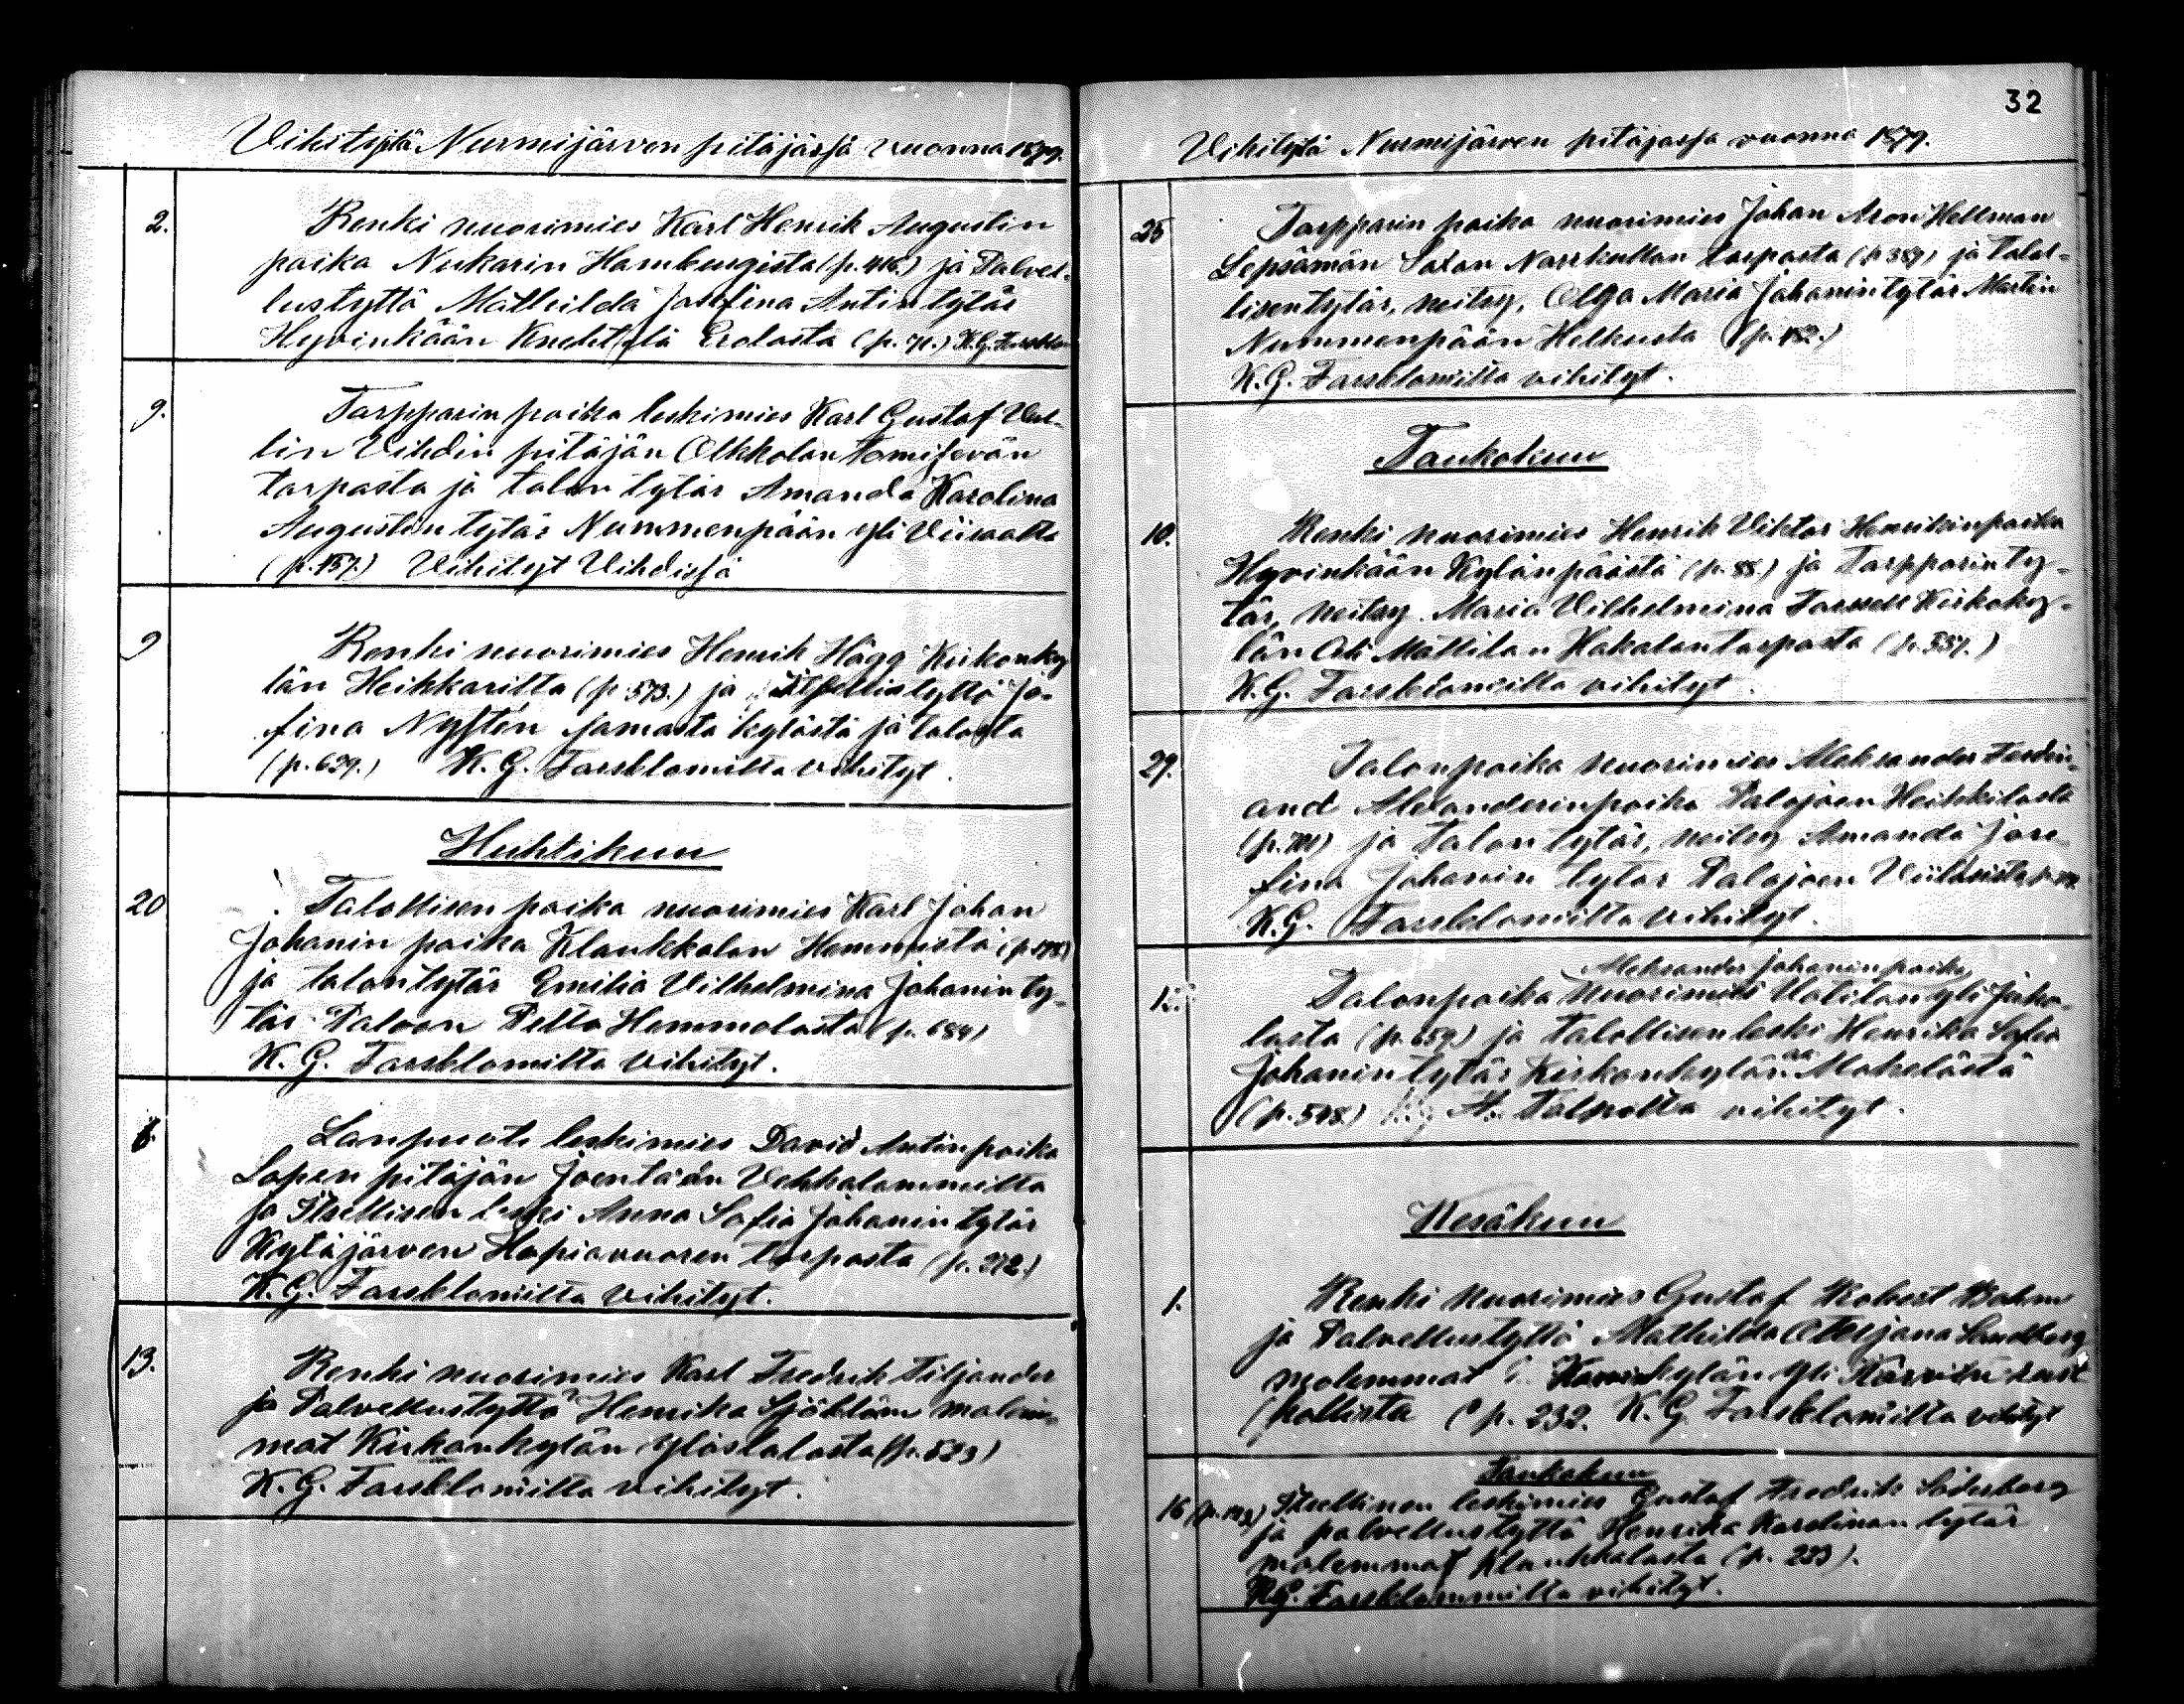 Vihityitä Nurmijärven pitäjässä vuonna 1879.
2. Renki nuorimies Karl Henrik Augustin
poika Nukarin Hambengista (p. 416.) ja Palvel-
lustyttö Mathilda Josefina Antintytär
Hyvinkään Knehtilä Erolasta (p. 71.) K.G. Farsblom
9. Torpparin poika leskimies Karl Gustaf
lin Vihdin pitäjän Olkkolan
torpasta ja talon tytär Amanda Karolina
Augustin tytär Nummenpään yli
(p. 157.) Vihityt Vihdissä
9 Renki nuorimies Henrik Hägg Kirkonky
län Heikkarilta (p. 573.) ja tyttö Jo-
fina Nystén samasta kylästä ja talosta
(p. 629.) K. G. Farsblomilta vihityt.
Huhtikuu
20 Talollisen poika nuorimies Karl Johan
Johanin poika Klaukkalan
ja talontytär Emilia Vilhelmina Johanin ty-
tär Palojoen Pelto Hemmolasta (p. 684)
K. G. Farsblomilta vihityt.
leskimies David Antinpoika
Lopen pitäjän Joentaän Vehkalammilta
ja Itsellisen leski Anna Sofia Johanin tytär
Kytäjärven Hopiavuoren torpasta (p. 272.)
K. G. Farsblomilta vihityt.
13. Renki nuorimies Karl Fredrik Siljander
ja Palvellustyttö Henrika Sjöblom molem-
mat Kirkonkylän Ylöstalosta (p. 523)
K. G. Farsblomilta vihityt.
32
Vihityitä Nurmijärven pitäjässä vuonna 1879.
25 Torpparin poika nuorimies Johan Aron Hellman
Lepsämän torpasta (p. 389) ja talol-
lisentytär, neitsy, Olga Maria Johanintytär Martin
Nummenpään Helkusta (p. 152.)
K. G. Farsblomilta vihityt.
Toukokuu
10. Renki nuorimies Henrik Viktor Henrikinpoika
Hyvinkään Kylänpäästä (p. 88.) ja Torpparin ty-
tär, neitsy Maria Vilhelmina Forssell Kirkoky-
län Ali Mattilan Hakalantorpasta (p. 557.)
K. G. Farsblomilta vihityt.
29. Talonpoika nuorimies Aleksander Ferdin-
and Alexanderinpoika Palojoen Heikkilästä
(p. 701) ja talon tytär, neitsy Amanda Jose-
fina Johanin tytär Palojoen
K. G. Farsblomilta vihityt.
Aleksander Johanin poika
Talonpoika nuorimies yli Jako-
lasta (p. 659) ja talollisen leski Henrika Sofia
Johanin tytär Kirkonkylän Mäkelästä
(p. 548.) vihityt.
Kesäkuu
1. Renki nuorimies Gustaf Robert Bohm
ja Palvellustyttö Mathilda Sandberg
molemmat kylän yli
pollista (p. 232. K. G. Farsblomilta vihityt
Toukokuu
16 Itsellinen leskimies Gustaf Fredrik Söderberg
ja palvellustyttö Henrika Karolinan tytär
molemmat Klaukkalasta (p. 223).
K.G. Farsblommilta vihityt.